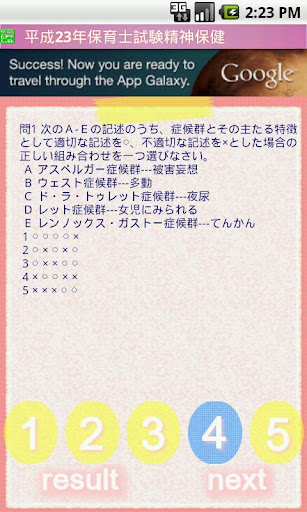 3G
2:23 PM
平成23年保育士試験精神保健
Success! Now you are ready to
travel through the App Galaxy.
Google
問1 次のA-Eの記述のうち、症候群とその主たる特徴
として適切な記述を○、不適切な記述を×とした場合の
正しい組み合わせを一つ選びなさい。
A アスペルガー症候群---被害妄想
B ウェスト症候群---多動
C ド・ラ・トゥレット症候群---夜尿
D レット症候群---女児にみられる
E レンノックス・ガストー症候群---てんかん
1 ○○○○×
2 ○×○×○
3 ○××○○
4 ×○○××
5 ×××○○
1 2 3 4 5
result next